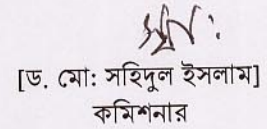 [ড. মো: সহিদুল ইসলাম]
কমিশনার